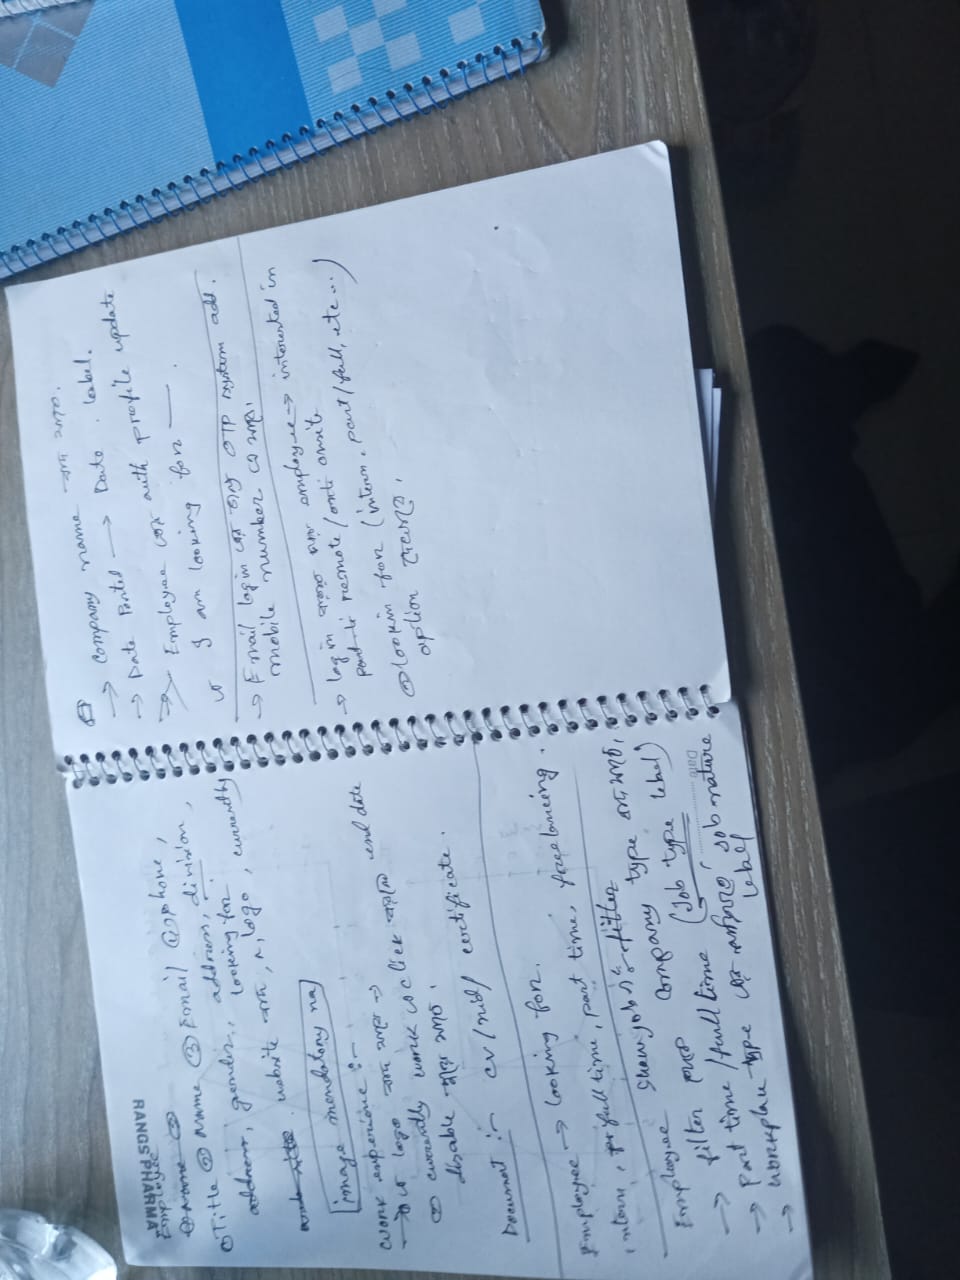 RANGS PHARMA
Employee
① Name ②
① Title ② Name ③ Email ④ phone,
address, gender, address, division,
looking for.
website বাদ, logo, currently
image mendatory na
work experience :-
→ ① এ logo বাদ যাবে →
② currently work এ click করলে end date
disable হয়ে যাবে.
Document :- cv/nid/ certificate.
Employee → looking for.
intern, full time, part time, freelancing.
Employee Show jobs :- filter
→ filter থেকে company type বাদ যাবে,
→ part time/full time (Job type label)
→ workplace type এর Job nature
label
Date
→ company name বাদ যাবে.
→ Date Posted → Date label.
→ Employee এর auth profile update
এ I am looking for —.
→ Email login এর জন্য OTP system add.
mobile number এ যাবে.
→ login করার পর employee → interested in
remote/onsite
② lookin for (intern, part/full, etc...)
option